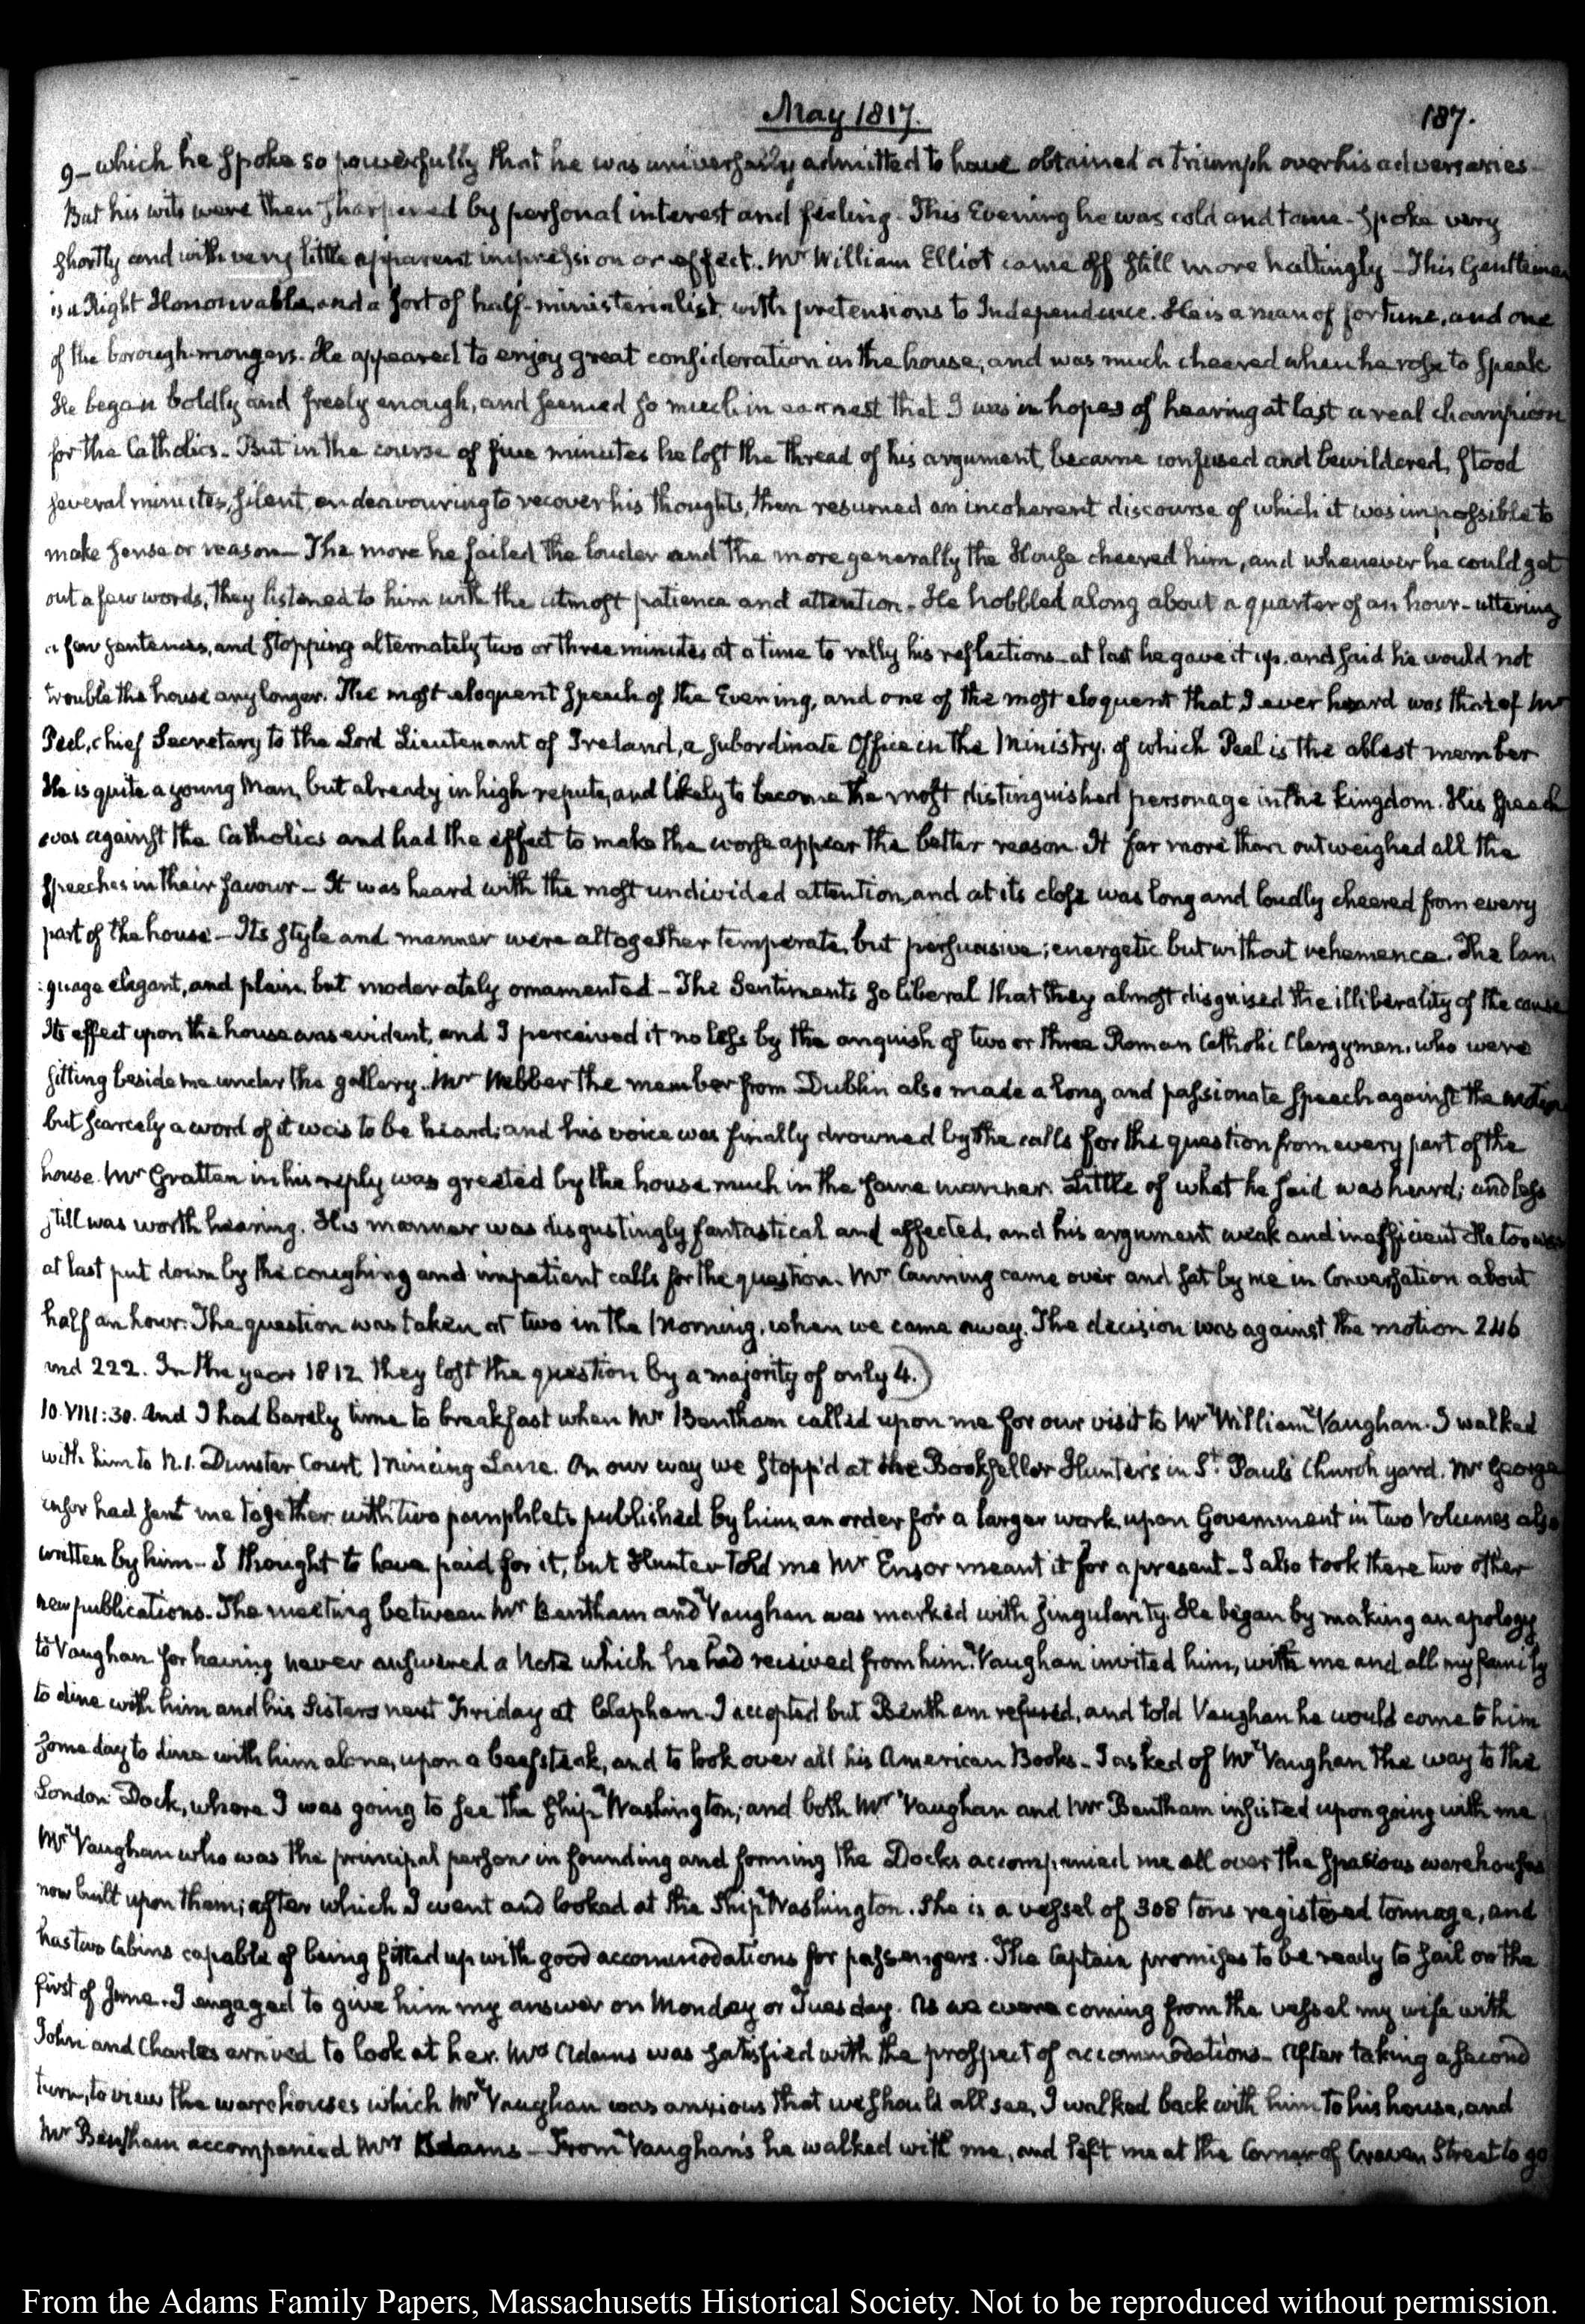 May 1817.
187.
9- which he spoke so powerfully that he was universally admitted to have obtained a triumph over his adversaries-
But his wits were then sharpened by personal interest and feeling. This Evening he was cold and tame- spoke very
shortly and with very little apparent impression or effect. Mr William Elliot came off still more haltingly- This Gentleman
is a Right Honourable, and a sort of half-ministerialist, with pretensions to Independence. He is a man of fortune, and one
of the borough-mongers. He appeared to enjoy great consideration in the house, and was much cheered when he rose to speak
He began boldly and freely enough, and seemed so much in earnest that I was in hopes of hearing at last a real champion
for the Catholics- But in the course of five minutes he lost the thread of his argument, became confused and bewildered, stood
several minutes, silent, endeavouring to recover his thoughts, then resumed an incoherent discourse of which it was impossible to
make sense or reason- The more he failed the louder and the more generally the House cheered him, and whenever he could get
out a few words, they listened to him with the utmost patience and attention- He hobbled along about a quarter of an hour- uttering
a few sentences, and stopping alternately two or three minutes at a time to rally his reflections- at last he gave it up, and said he would not
trouble the house any longer. The most eloquent speech of the Evening, and one of the most eloquent that I ever heard was that of Mr
Peel, chief Secretary to the Lord Lieutenant of Ireland, a subordinate Office in the Ministry, of which Peel is the ablest member
He is quite a young Man, but already in high repute, and likely to become the most distinguished personage in the kingdom. His speech
was against the Catholics and had the effect to make the worse appear the better reason. It far more than outweighed all the
speeches in their favour- It was heard with the most undivided attention, and at its close was long and loudly cheered from every
part of the house- Its style and manner were altogether temperate, but persuasive; energetic but without vehemence. The lan:
:guage elegant, and plain, but moderately ornamented- The Sentiments so liberal that they almost disguised the illiberality of the cause
Its effect upon the house was evident, and I perceived it no less by the anguish of two or three Roman Catholic Clergymen, who were
sitting beside me under the gallery. Mr Webber the member from Dublin also made a long, and passionate speech against the motion
but scarcely a word of it was to be heard; and his voice was finally drowned by the calls for the question from every part of the
house. Mr Grattan in his reply was greeted by the house much in the same manner. Little of what he said was heard; and less
still was worth hearing. His manner was disgustingly fantastical and affected, and his argument weak and inefficient He too was
at last put down by the coughing and impatient calls for the question. Mr Canning came over and sat by me in Conversation about
half an hour. The question was taken at two in the Morning, when we came away. The decision was against the motion 246
and 222. In the year 1812 they lost the question by a majority of only 4.)
10. VIII:30. And I had barely time to breakfast when Mr Bentham called upon me for our visit to Mr William Vaughan. I walked
with him to N. 1. Dunster Court Mincing Lane. On our way we stopp'd at the Bookseller Hunter's in St. Pauls Church yard. Mr George
Ensor had sent me together with two pamphlets published by him, an order for a larger work upon Government in two Volumes also
written by him- I thought to have paid for it, but Hunter told me Mr Ensor meant it for a present- I also took there two other
new publications. The meeting between Mr Bentham and Vaughan was marked with singularity. He began by making an apology
to Vaughan for having never answered a Note which he had received from him. Vaughan invited him, with me and all my family
to dine with him and his Sisters next Friday at Clapham. I accepted but Bentham refused, and told Vaughan he would come to him
some day to dine with him alone, upon a beefsteak, and to look over all his American Books- I asked of Mr Vaughan the way to the
London Dock, where I was going to see the ship Washington; and both Mr Vaughan and Mr Bentham insisted upon going with me
Mr Vaughan who was the principal person in founding and forming the Docks accompanied me all over the spacious warehouses
now built upon them; after which I went and looked at the Ship Washington. She is a vessel of 308 tons registered tonnage, and
has two Cabins capable of being fitted up with good accommodations for passengers. The Captain promises to be ready to sail on the
first of June. I engaged to give him my answer on Monday or Tuesday. As we were coming from the vessel my wife with
John and Charles arrived to look at her. Mrs Adams was satisfied with the prospect of accommodations- After taking a second
turn, to view the warehouses which Mr Vaughan was anxious that we should all see, I walked back with him to his house, and
Mr Bentham accompanied Mrs Adams- From Vaughan's he walked with me, and left me at the Corner of Craven Street to go
From the Adams Family Papers, Massachusetts Historical Society. Not to be reproduced without permission.